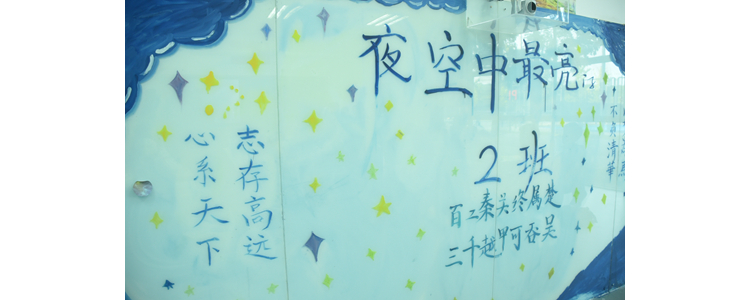 夜空中最亮
2班
百二秦关终属楚
三千越甲可吞吴
志存高远
心系天下
不负清華